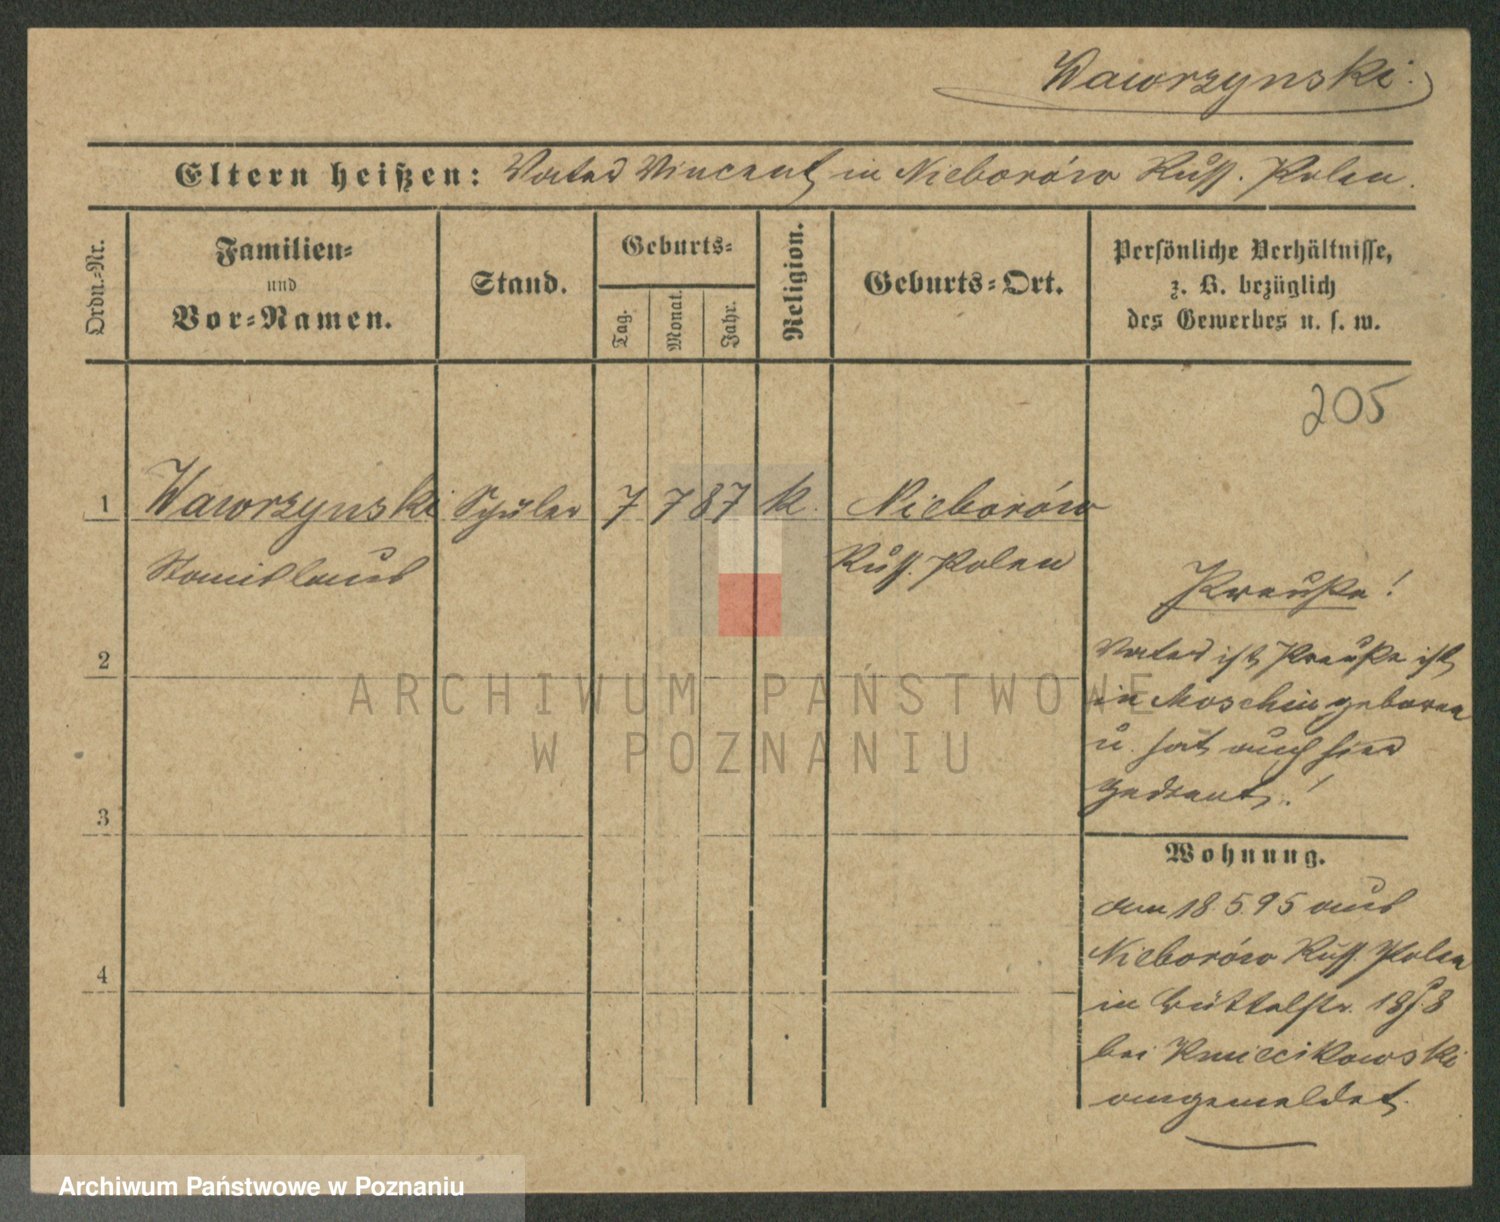 Wawrzynski.
Eltern heißen: Vater Vincent, in Nieborów Russ. Polen.
Ordn.-Nr.
Familien-
und
Vor-Namen.
Stand.
Geburts-
Tag.
Monat.
Jahr.
Religion.
Geburts-Ort.
Persönliche Verhältnisse,
z. B. bezüglich
des Gewerbes u. s. w.
205
1 Wawrzynski Schüler 7 7 87 k. Nieborów
Stanislaus Russ. Polen
Preuße!
Vater ist Preuße ist
in Moschin geboren
u. hat auch hier
gedient.!
2
3
4
Wohnung.
am 18.5.95 aus
Nieborów Russ. Polen
in Büttelstr.
bei Kmiecikowski
angemeldet.
ARCHIWUM PAŃSTWOWE
W POZNANIU
Archiwum Państwowe w Poznaniu